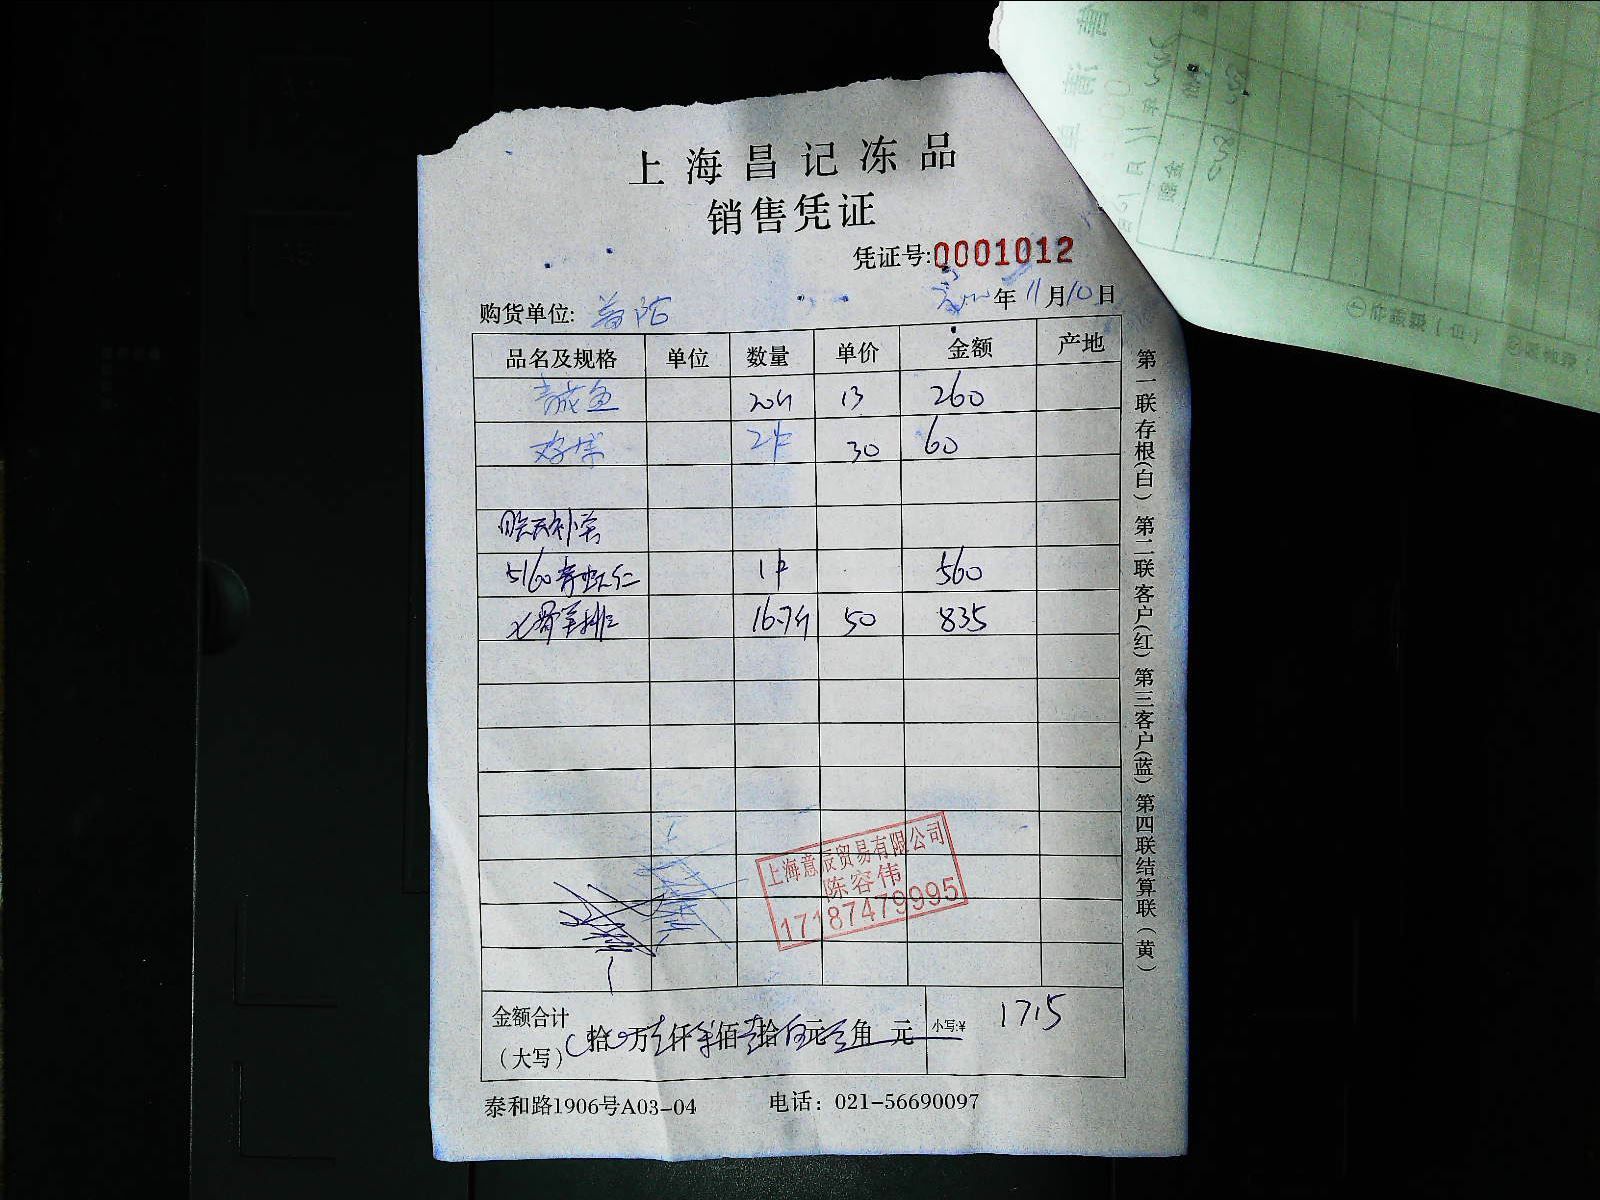 上海昌记冻品
销售凭证
凭证号:0001012
购货单位: 年11月10日
品名及规格 单位 数量 单价 金额 产地
鱼 20斤 13 260
2 30 60
5160青虾仁 1 560
七骨羊排 16.7斤 50 835
上海意辰贸易有限公司
陈容伟
17187479995
金额合计
(大写) 拾 万 仟 佰 拾 元 角 元 小写:¥ 1715
泰和路1906号A03-04 电话：021-56690097
第一联存根(白) 第二联客户(红) 第三客户(蓝) 第四联结算联(黄)